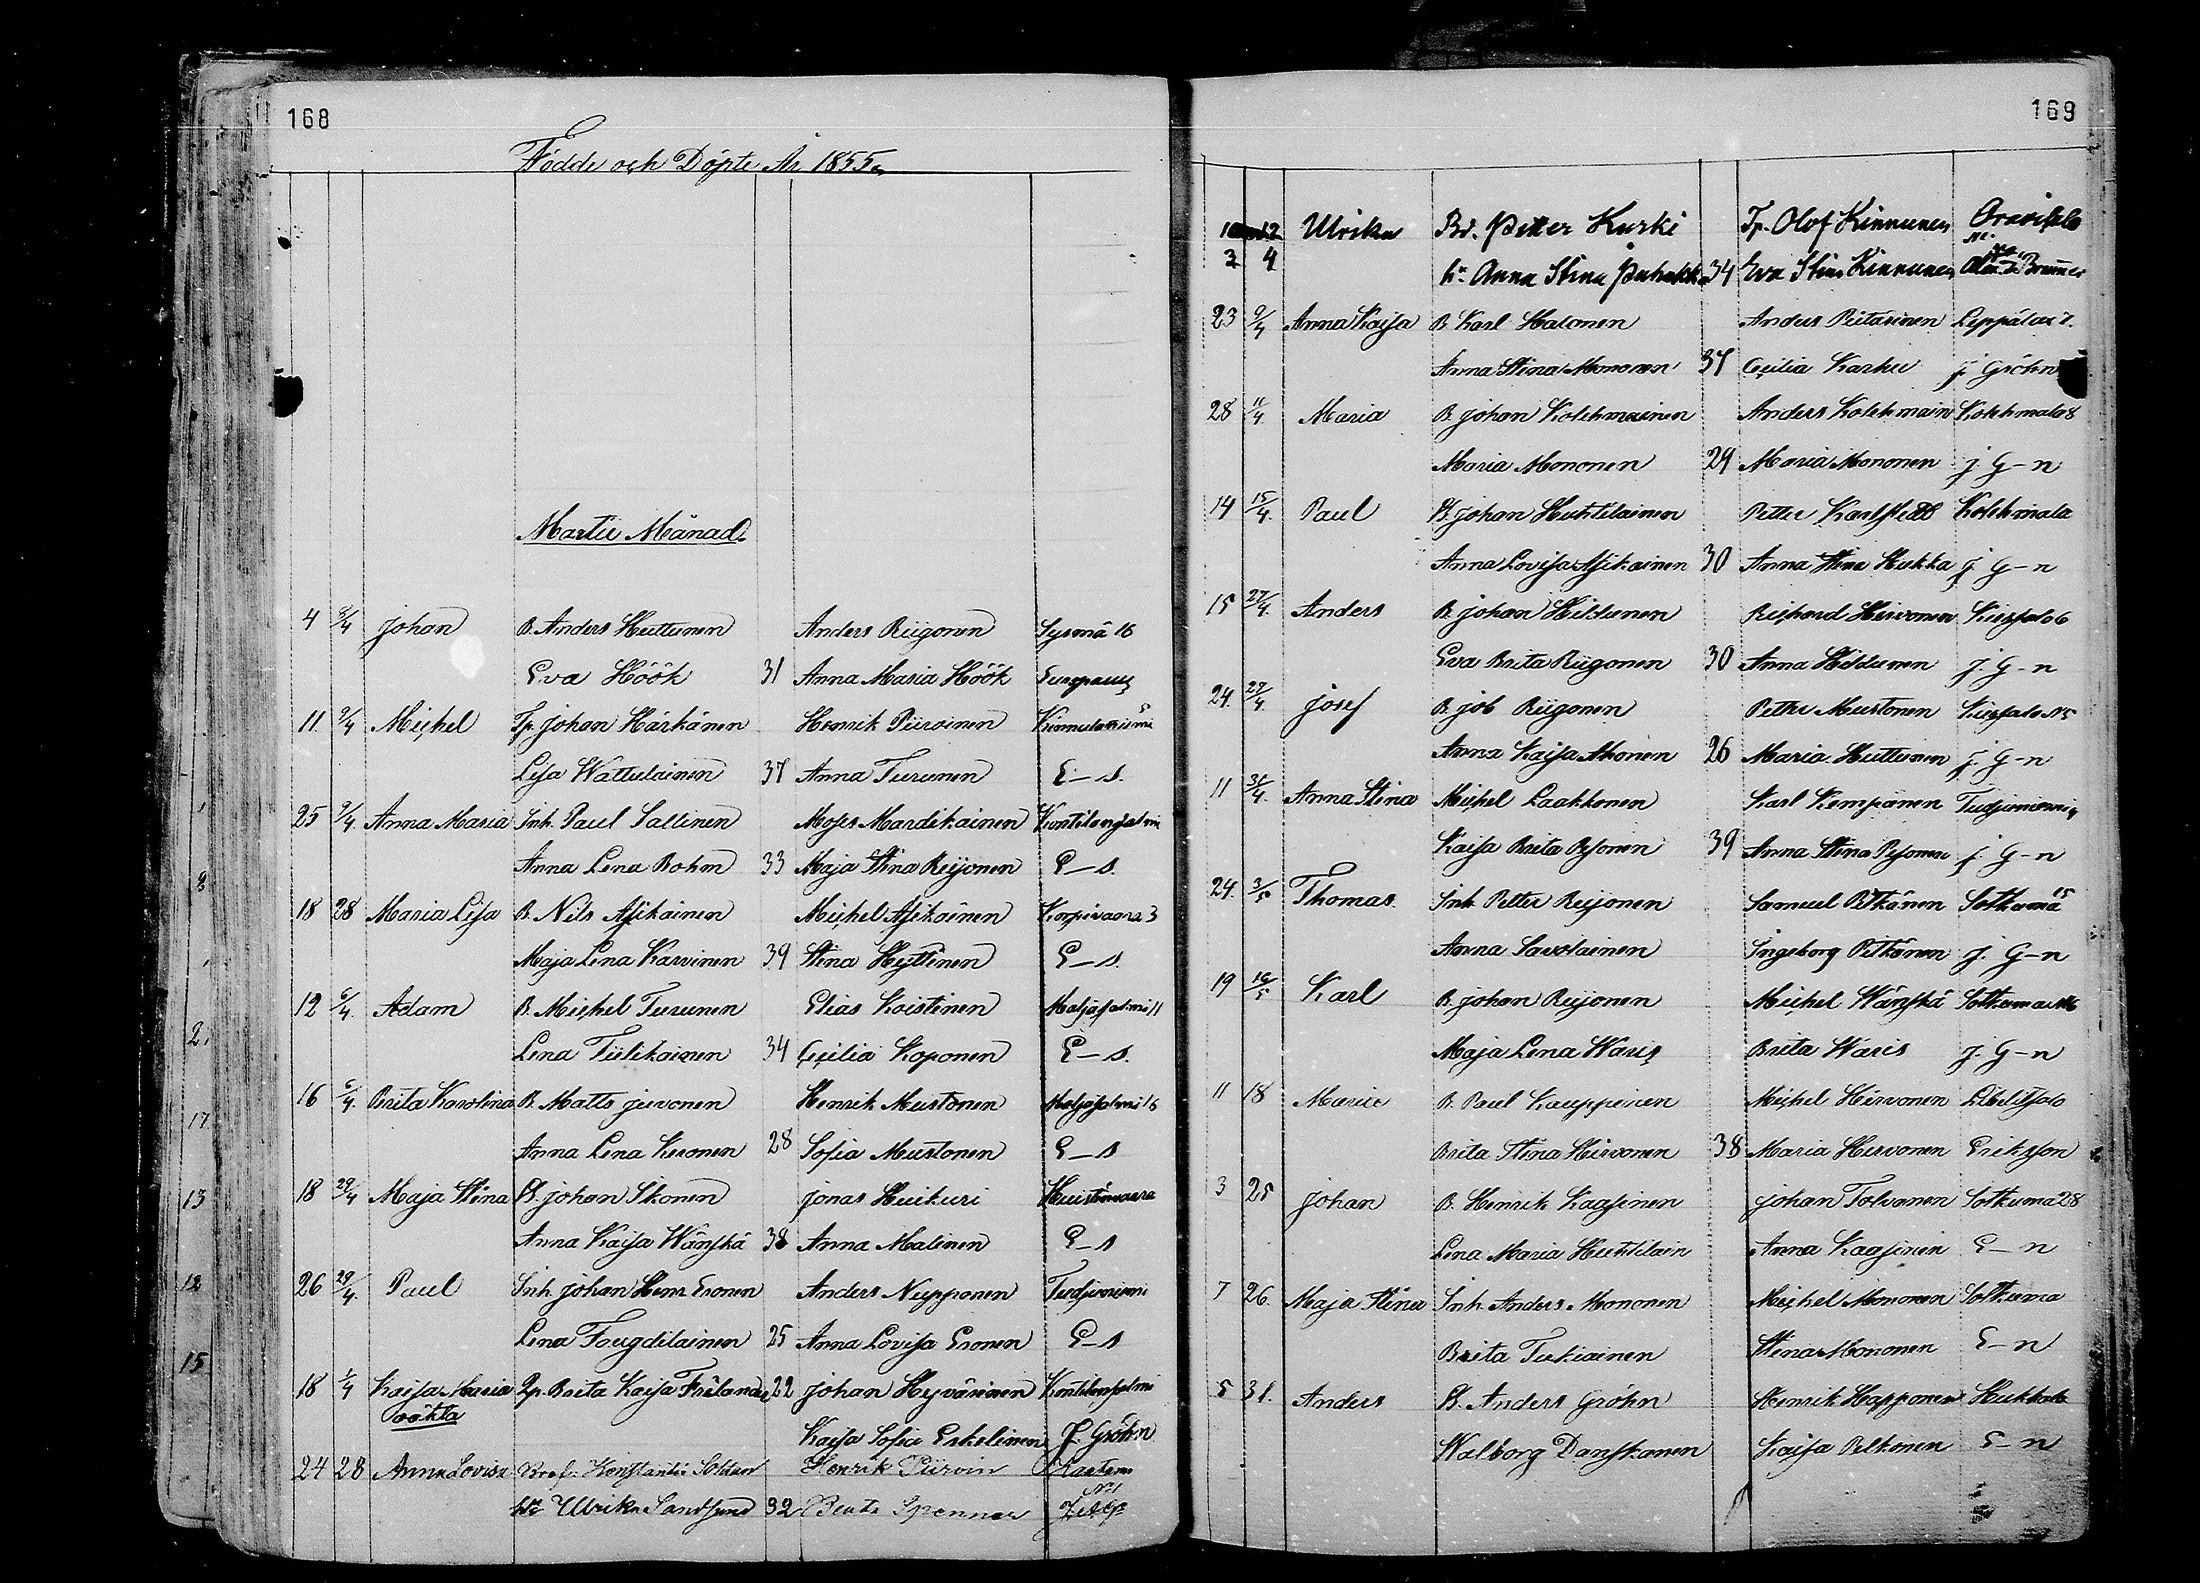 168
Födde och Döpte År 1855.
Martii Månad.
4 2/4 Johan B. Anders Huttunen Anders Riigonen Sysmä 16
Eva Höök 31 Anna Maria Höök Europaeus
11 9/4 Michel Tp. Johan Härkänen Henrik Piiroinen
Lisa Wattulainen 37 Anna Turunen E–s.
25 9/4 Anna Maria Inh. Paul Sallinen Moses Mardikainen Kontilonjalmi
Anna Lena Bohm 33 Maja Stina Reijonen E–s.
18 28 Maria Lisa B. Nils Asikainen Michel Asikainen Korpivaara 3
Maja Lena Karvinen 39 Stina Hyttinen E–s.
12 6/4 Adam B. Michel Turunen Elias Koistinen 11
Lena Tiilikainen 34 Cecilia Koponen E–s.
16 6/4 Brita Karolina B. Matts Juvonen Henrik Mustonen 16
Anna Lena Keronen 28 Sofia Mustonen E–s
18 29/4 Maja Stina B. Johan Ikonen Jonas Huikuri
Anna Kaisa Wänskä 38 Anna Malinen E–s
26 29/4 Paul Inh. Johan Henr Eronen Anders Nupponen Tudjuniemi
Lena Fougdilainen 25 Anna Lovisa Eronen E–s
18 1/4 Kaisa Maria Brita Kaisa 22 Johan Hyvärinen
oäkta
Kaisa Sofia Eskelinen J. Gröhn
24 28 Anna Lovisa Soldan Henrik
Ulrika Sandsund 32
169
Ulrika Bd. Petter Kurki Tp. Olof Kinnunen
3 4 Anna Stina 34 Eva Stina Kinnunen
23 9/4 Anna Kaisa B Karl Halonen Anders Piitarinen
Anna Stina Mononen 37 Cecilia Karhu J Gröhn
28 11/4 Maria B. Johan Kolehmainen Anders Kolehmain Kolehmala 8
Maria Mononen 29 Maria Mononen J. G–n
14 15/4 Paul B. Johan Huhtilainen Petter Karlstedt Kolehmala
Anna Lovisa Asikainen 30 Anna Stina Hukka J. G–n
15 27/4 Anders B. Johan Hildunen Richard Hirvonen
Eva Brita Riigonen 30 Anna Hildunen J. G–n
24 27/4 Josef B. Job Riigonen Petter Mustonen
Anna Kaisa Monen 26 Maria Huttunen J. G–n
11 Anna Stina Michel Laakkonen Karl Kempänen Tudjuniemi
Kaisa Brita Pesonen 39 Anna Stina Pesonen J. G–n
24. 3/5 Thomas Inh. Petter Reijonen Samuel Pitkänen Sotkuma
Anna Savolainen Ingeborg Pitkänen J. G–n
19 16/5 Karl B. Johan Reijonen Michel Wänskä
Maja Lena Waris Brita Waris J. G–n
11 18 Maria B. Paul Kauppinen Michel Hirvonen
Brita Stina Hirvonen 38 Maria Hirvonen Eriksson
3 25 Johan B. Henrik Kaasinen Johan Tolvanen Sotkuma 28
Lena Maria Huhtilain Anna Kaasinen E–n
7 26. Maja Stina Inh. Anders Mononen Michel Mononen Sotkuma
Brita Tukiainen Stina Mononen E–n
5 31. Anders B. Anders Gröhn Henrik Happonen Hukkala
Walborg Danskanen Kaisa Pelkonen E–n